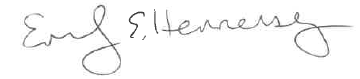 Emily E. Hennessy